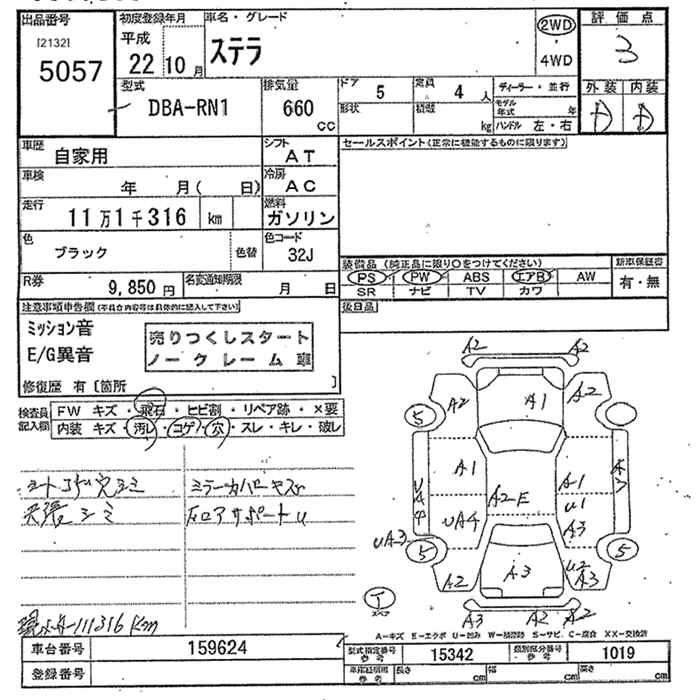 出品番号 初度登録年月 車名・グレード 2WD 評価点
[2132] 平成 ステラ 3
5057 22 10月 4WD
型式 排気量 ドア 5 定員 4 人 ディーラー・並行 外装 内装
DBA-RN1 660 cc 形状 積載 kg モデル年式 年
ハンドル 左・右
車歴 自家用 シフト AT セールスポイント(正常に機能するものに限ります)
車検 年 月( 日) 冷房 AC
走行 11万1千316 km 燃料 ガソリン
色 ブラック 色替 色コード 32J
装備品(純正品に限り○をつけてください) 新車保証書
R券 9,850円 名変通知期限 月 日
PS PW ABS エアB AW 有・無
SR ナビ TV カワ
注意事項申告欄(不具合内容等は具体的に記入して下さい) 後日品
ミッション音 売りつくしスタート
E/G異音 ノークレーム車
修復歴 有〔箇所 〕
検査員記入欄 FW キズ・飛石・ヒビ割・リペア跡・×要
内装 キズ・汚レ・コゲ・穴・スレ・キレ・破レ
シートコゲ穴シミ ミラーカバーキズ
天張シミ
A2 A2
A2 A1 A2
5
A1 A1
A2E U1
UA4 A3
UA3 5 5
A2 A3 U2 A3
A3 A2 A2
111316 Km
A-キズ E-エクボ U-凹み W-補修跡 S-サビ C-腐食 XX-交換済
車台番号 159624 型式指定番号 参考 15342 類別区分番号 参考 1019
登録番号 長さ cm 幅 cm 高さ cm